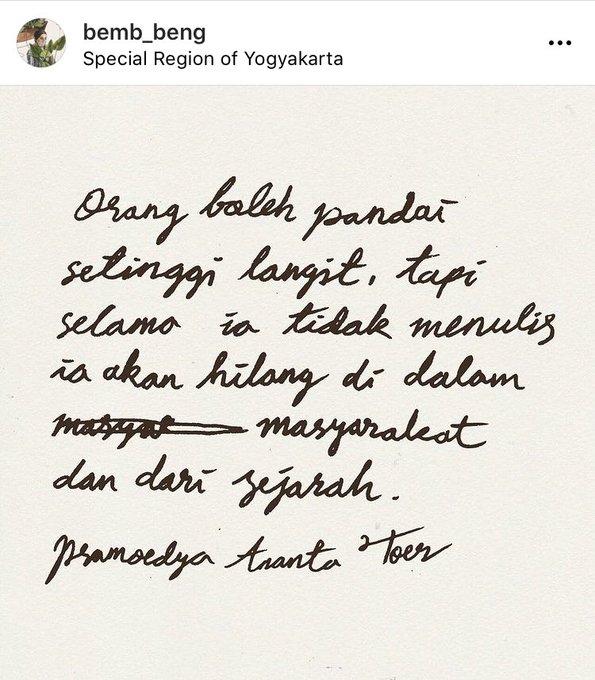 bemb_beng
Special Region of Yogyakarta
Orang boleh pandai
setinggi langit, tapi
selama ia tidak menulis
ia akan hilang di dalam
masyarakat
dan dari sejarah.
Pramoedya Ananta Toer